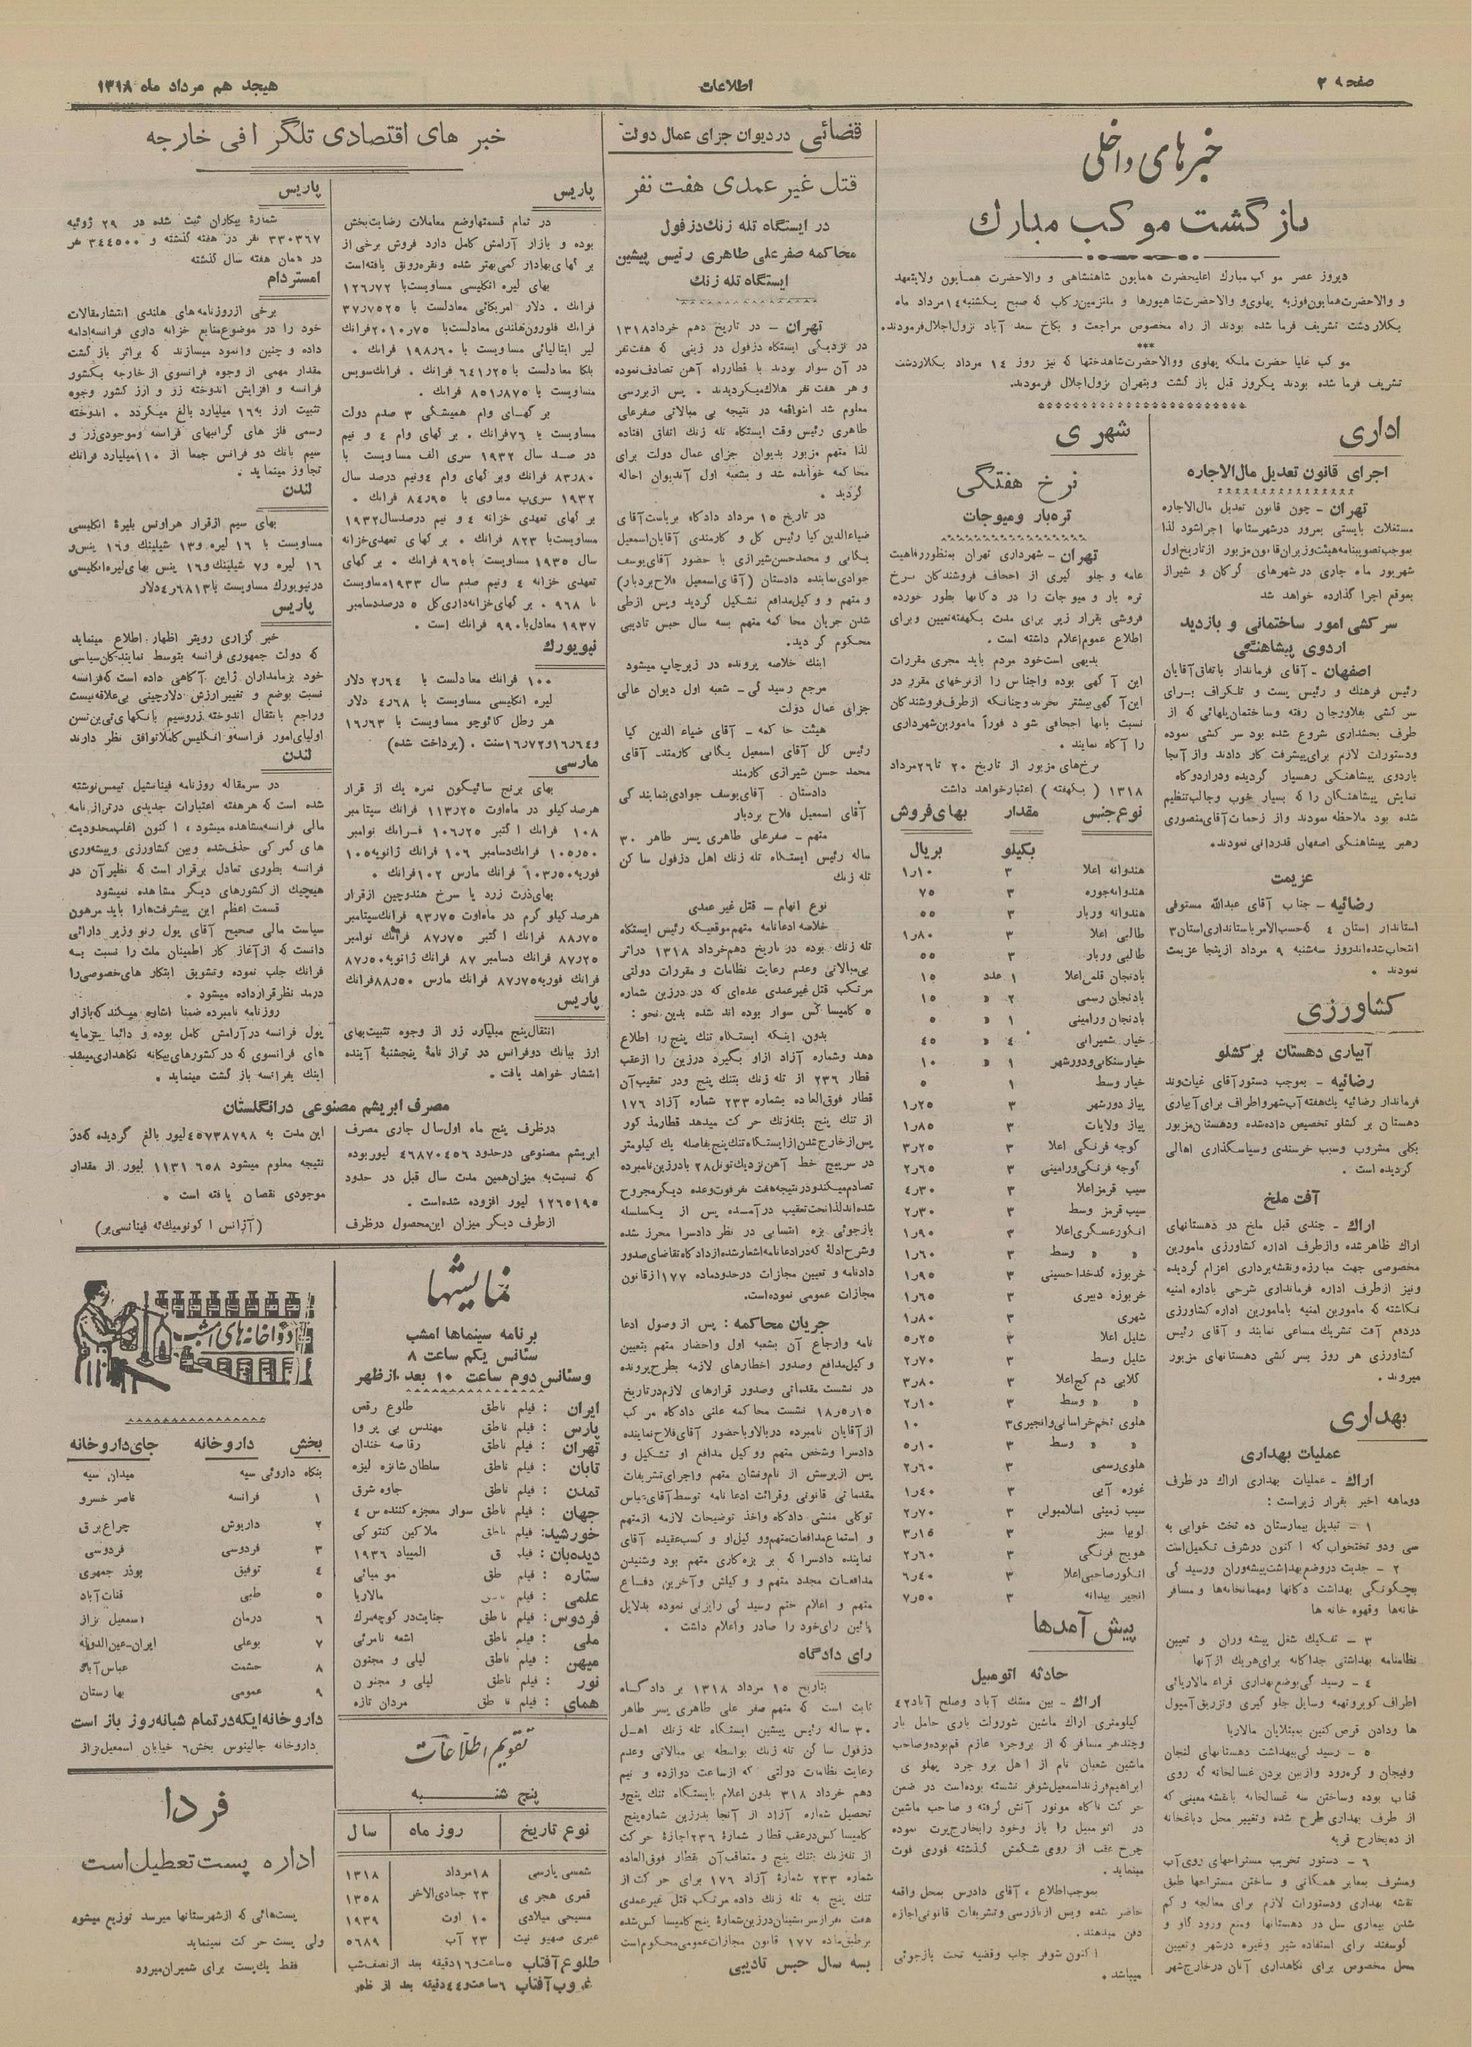 صفحه ۲
اطلاعات
هیجد هم مرداد ماه ۱۳۱۸
خبرهای داخلی
بازگشت موکب مبارك
دیروز عصر موکب مبارك اعلیحضرت همایون شاهنشاهی و والاحضرت همایون ولایتعهد
و والاحضرت همایون فوزیه پهلوی و والاحضرت شاهپورها و ملتزمین رکاب که صبح یکشنبه ۱۴ مرداد ماه
بکلاردشت تشریف فرما شده بودند از راه مخصوص مراجعت و بکاخ سعد آباد نزول اجلال فرمودند.
***
موکب علیا حضرت ملکه پهلوی و والاحضرت شاهدختها که نیز روز ۱۴ مرداد بکلاردشت
تشریف فرما شده بودند یکروز قبل بازگشت و بتهران نزول اجلال فرمودند.
اداری
اجرای قانون تعدیل مال الاجاره
تهران - چون قانون تعدیل مال الاجاره
مستغلات بایستی بمرور در شهرستانها اجرا شود لذا
بموجب تصویبنامه هیئت وزیران قانون مزبور از تاریخ اول
شهریور ماه جاری در شهرهای گرگان و شیراز
بموقع اجرا گذارده خواهد شد
سرکشی امور ساختمانی و بازدید
اردوی پیشاهنگی
اصفهان - آقای فرماندار باتفاق آقایان
رئیس فرهنگ و رئیس پست و تلگراف برای
سرکشی بفلاورجان رفته و ساختمان پلهائی که از
طرف بخشداری شروع شده بود سرکشی نموده
و دستورات لازم برای پیشرفت کار دادند و از آنجا
باردوی پیشاهنگی رهسپار گردیده و در اردوگاه
نمایش پیشاهنگان را که بسیار خوب و جالب تنظیم
شده بود ملاحظه نمودند و از زحمات آقای منصوری
رهبر پیشاهنگی اصفهان قدردانی نمودند.
عزیمت
رضائیه - جناب آقای عبدالله مستوفی
استاندار استان ۴ که حسب الامر باستانداری استان ۳
انتخاب شده اند روز سه شنبه ۹ مرداد از اینجا عزیمت
نمودند.
کشاورزی
آبیاری دهستان برکشلو
رضائیه - بموجب دستور آقای غیاثوند
فرماندار رضائیه یك هفته آب شهر و اطراف برای آبیاری
دهستان برکشلو تخصیص داده شده و دهستان مزبور
بکلی مشروب و سبب خرسندی و سپاسگذاری اهالی
گردیده است.
آفت ملخ
اراك - چندی قبل ملخ در دهستانهای
اراك ظاهر شده و از طرف اداره کشاورزی مامورین
مخصوصی جهت مبارزه و نقشه برداری اعزام گردیده
و نیز از طرف اداره فرمانداری شرحی باداره امنیه
نگاشته که مامورین امنیه بامامورین اداره کشاورزی
در دفع آفت تشریك مساعی نمایند و آقای رئیس
کشاورزی هر روز بسرکشی دهستانهای مزبور
میروند.
بهداری
عملیات بهداری
اراك - عملیات بهداری اراك در طرف
دوماهه اخیر بقرار زیر است:
۱ - تبدیل بیمارستان ده تخت خوابی به
سی و دو تختخواب که اکنون در شرف تکمیل است
۲ - جدیت در وضع بهداشت پیشه وران و رسیدگی
بچگونگی بهداشت دکانها و مهمانخانه ها و مسافر
خانه ها و قهوه خانه ها
۳ - تفکیك شغل پیشه وران و تعیین
نظامنامه بهداشتی جداگانه برای هریك از آنها
۴ - رسیدگی بوضع بهداری قراء مالاریائی
اطراف وسایل جلوگیری و تزریق آمپول
ها و دادن قرص کنین بمبتلایان مالاریا
۵ - رسیدگی ببهداشت دهستانهای لنجان
وفیجان و کره رود و از بین بردن غسالخانه که روی
قنات بوده و ساختن سه غسالخانه بانقشه معینی که
از طرف بهداری طرح شده و تغییر محل دباغخانه
از ده بخارج قریه
۶ - دستور تخریب مستراحهای روی آب
و مشرف بمعابر همگانی و ساختن مستراحها طبق
نقشه بهداری و دستورات لازم برای معالجه و کم
شدن بیماری سل در دهستانها و منع ورود گاو و
گوسفند برای استفاده شیر وغیره در شهر و تعیین
محل مخصوص برای نگاهداری آنان در خارج شهر
شهری
نرخ هفتگی
تره بار و میوجات
تهران - شهرداری تهران بمنظور رفاهیت
عامه و جلوگیری از اجحاف فروشندگان نرخ
تره بار و میوجات را در دکانها بطور خورده
فروشی بقرار زیر برای مدت یکهفته تعیین و برای
اطلاع عموم اعلام داشته است.
بدیهی است خود مردم باید مجری مقررات
این آگهی بوده و اجناس را از نرخهای مقرر در
این آگهی بیشتر نخرند و چنانکه از طرف فروشندگان
نسبت بآنها اجحافی شود فوراً مامورین شهرداری
را آگاه نمایند.
نرخهای مزبور از تاریخ ۲۰ تا ۲۶ مرداد
۱۳۱۸ ( یکهفته ) اعتبار خواهد داشت
نوع جنس مقدار بهای فروش
بکیلو بریال
هندوانه اعلا ۳ ۱ر۱۰
هندوانه جوره ۳ ۷۵
هندوانه وربار ۳ ۵۵
طالبی اعلا ۳ ۱ر۸۰
طالبی وربار ۳ ۵۵
بادنجان قلمی اعلا ۱ عدد ۱۵
بادنجان رسمی ۲ « ۱۵
بادنجان ورامینی ۱ « ۵
خیار شمیرانی ۴ « ۴۵
خیار سنکانی و دورشهر ۱ « ۱۰
خیار وسط ۱ ۵
پیاز دورشهر ۳ ۱ر۲۵
پیاز ولایات ۳ ۱ر۸۵
گوجه فرنگی اعلا ۳ ۳ر۲۵
گوجه فرنگی ورامینی ۳ ۲ر۶۵
سیب قرمز اعلا ۳ ۴ر۳۰
سیب قرمز وسط ۳ ۲ر۳۰
انگور عسگری اعلا ۳ ۱ر۹۰
« « وسط ۳ ۱ر۶۰
خربوزه کدخدا حسینی ۳ ۱ر۹۵
خربوزه دبیری ۳ ۱ر۶۵
شهری ۳ ۱ر۸۰
شلیل اعلا ۳ ۵ر۲۵
شلیل وسط ۳ ۲ر۷۰
گلابی دم کج اعلا ۳ ۳ر۸۰
« « وسط ۳ ۲ر۱۰
هلوی تخم خراسانی و انجیری ۳ ۱۰
« « وسط ۳ ۵ر۱۰
هلوی رسمی ۳ ۲ر۶۰
غوره آبی ۳ ۱ر۴۰
سیب زمینی اسلامبولی ۳ ۲ر۷۰
لوبیا سبز ۳ ۳ر۱۵
هویج فرنگی ۳ ۲ر۶۰
انگور صاحبی اعلا ۳ ۶ر۴۰
انجیر بیدانه ۳ ۷ر۵۰
پیش آمدها
حادثه اتومبیل
اراك - بین مشك آباد و صلح آباد ۴۲
کیلومتری اراك ماشین شورولت باری حامل بار
و چند هر مسافر که از بروجرد عازم قم بوده و صاحب
ماشین شعبان نام از اهل بروجرد پهلوی
ابراهیم فرزند اسمعیل شوفر نشسته بوده است در ضمن
حرکت ناگاه موتور آتش گرفته و صاحب ماشین
در اتومبیل را باز و خود را بخارج پرت نموده
چرخ عقب از روی شکمش گذشته فوری فوت
مینماید.
بموجب اطلاع، آقای دادرس بمحل واقعه
حاضر شده و پس از بازرسی و تشریفات قانونی اجازه
دفن میدهند.
اکنون شوفر جلب و قضیه تحت بازجوئی
میباشد.
قضائی در دیوان جزای عمال دولت
قتل غیر عمدی هفت نفر
در ایستگاه تله زنك دزفول
محاکمه صفرعلی طاهری رئیس پیشین
ایستگاه تله زنك
تهران - در تاریخ دهم خرداد ۱۳۱۸
در نزدیکی ایستگاه دزفول در زینی که هفت نفر
در آن سوار بودند با قطار راه آهن تصادف نموده
و هر هفت نفر هلاك میگردیدند. پس از بررسی
معلوم شد اتنواقعه در نتیجه بی مبالاتی صفرعلی
طاهری رئیس وقت ایستگاه تله زنك اتفاق افتاده
لذا متهم مزبور بدیوان جزای عمال دولت برای
محاکمه خوانده شد و بشعبه اول آندیوان احاله
گردید.
در تاریخ ۱۵ مرداد دادگاه بریاست آقای
ضیاءالدین کیا رئیس کل و کارمندی آقایان اسمعیل
یگانی و محمد حسن شیرازی با حضور آقای یوسف
جوادی نماینده دادستان (آقای اسمعیل فلاح بردبار)
و متهم و وکیل مدافع تشکیل گردید و پس از طی
شدن جریان محاکمه متهم بسه سال حبس تادیبی
محکوم گردید.
اینك خلاصه پرونده در زیر چاپ میشود
مرجع رسیدگی - شعبه اول دیوان عالی
جزای عمال دولت
هیئت حاکمه - آقای ضیاء الدین کیا
رئیس کل آقای اسمعیل یگانی کارمند- آقای
محمد حسن شیرازی کارمند
دادستان. آقای یوسف جوادی بنمایندگی
آقای اسمعیل فلاح بردبار
متهم - صفرعلی طاهری پسر طاهر ۳۰
ساله رئیس ایستگاه تله زنك اهل دزفول ساکن
تله زنك
نوع اتهام - قتل غیر عمدی
خلاصه ادعانامه متهم موقعیکه رئیس ایستگاه
تله زنك بوده در تاریخ دهم خرداد ۱۳۱۸ در اثر
بی مبالاتی و عدم رعایت نظامات و مقررات دولتی
مرتکب قتل غیر عمدی عده ای که در درزین شماره
۵ کامپساکس سوار بوده اند شده بدین نحو:
بدون اینکه ایستگاه تنك پنج را اطلاع
دهد و شماره آزاد از او بگیرد درزین را از عقب
قطار ۲۳۶ از تله زنك بتنك پنج و در تعقیب آن
قطار فوق العاده بشماره ۲۳۳ شماره آزاد ۱۷۶
از تنك پنج بتله زنك حرکت میدهد قطار مذکور
پس از خارج شدن از ایستگاه تنك پنج بفاصله یك کیلومتر
در سرپیچ خط آهن نزدیك تونل ۲۸ بادرزین نامبرده
تصادم میکند و در نتیجه هفت نفر فوت و عده دیگر مجروح
شده اند لذا تحت تعقیب در آمده پس از یکسلسله
بازجوئی بزه انتسابی در نظر دادسرا محرز شده
و شرح ادله که در ادعانامه اشعار شده از دادگاه تقاضای صدور
دادنامه و تعیین مجازات در حدود ماده ۱۷۷ از قانون
مجازات عمومی نموده است.
جریان محاکمه: پس از وصول ادعا
نامه و ارجاع آن بشعبه اول و احضار متهم بتعیین
وکیل مدافع و صدور اخطارهای لازمه بطرح پرونده
در نشست مقدماتی و صدور قرارهای لازم در تاریخ
۱۸ر۵ر۱۵ نشست محاکمه علنی دادگاه مرکب
از آقایان نامبرده در بالا و با حضور آقای فلاح نماینده
دادسرا و شخص متهم و وکیل مدافع او تشکیل و
پس از پرسش از نام و نشان متهم و اجرای تشریفات
مقدماتی قانونی و قرائت ادعانامه توسط آقای عباس
توکلی منشی دادگاه و اخذ توضیحات لازمه از متهم
و استماع مدافعات متهم و وکیل او و کسب عقیده آقای
نماینده دادسرا که بر بزه کاری متهم بود و شنیدن
مدافعات مجدد متهم و وکیلش و آخرین دفاع
متهم و اعلام ختم رسیدگی رایزنی نموده بدلایل
پائین رای خود را صادر و اعلام داشت.
رای دادگاه
بتاریخ ۱۵ مرداد ۱۳۱۸ بر دادگاه
ثابت است که متهم صفر علی طاهری پسر طاهر
۳۰ ساله رئیس پیشین ایستگاه تله زنك اهل
دزفول ساکن تله زنك بواسطه بی مبالاتی و عدم
رعایت نظامات دولتی که از ساعت دوازده و نیم
دهم خرداد ۳۱۸ بدون اعلام بایستگاه تنك پنج و
تحصیل شماره آزاد از آنجا بدرزین شماره پنج
کامپساکس در عقب قطار شماره ۲۳۶ اجازه حرکت
از تله زنك بتنك پنج و متعاقب آن بقطار فوق العاده
شماره ۲۳۳ شماره آزاد ۱۷۶ برای حرکت از
تنك پنج به تله زنك داده مرتکب قتل غیر عمدی
هفت نفر از سرنشینان درزین شماره پنج کامپساکس شده
بر طبق ماده ۱۷۷ قانون مجازات عمومی محکوم است
بسه سال حبس تادیبی
خبرهای اقتصادی تلگرافی خارجه
پاریس
در تمام قسمتها وضع معاملات رضایت بخش
بوده و بازار آرامش کامل دارد فروش برخی از
برگهای بهادار کمی بهتر شده و نقره رونق یافته است
بهای لیره انگلیسی مساویست با ۱۲۶ر۷۲
فرانك. دلار امریکائی معادلست با ۳۷ر۷۵۲۵
فرانك فلورن هلندی معادلست با ۲۰۱۰ر۷۵ فرانك
لیر ایتالیائی مساویست با ۱۹۸ر۶۰ فرانك.
بلکا معادلست با ۶۴۱ر۲۵ فرانك. فرانك سویس
مساویست با ۸۵۱ر۸۷۵ فرانك.
برگهای وام همیشگی ۳ صدم دولت
مساویست با ۷۶ فرانك. برگهای وام ۴ و نیم
در صد سال ۱۹۳۲ سری الف مساویست با
۸۳ر۸۰ فرانك و برگهای وام ۴ و نیم درصد سال
۱۹۳۲ سری ب مساوی با ۸۴ر۹۵ فرانك.
برگهای تعهدی خزانه ۴ و نیم درصد سال ۱۹۳۲
مساویست با ۸۲۳ فرانك. برگهای تعهدی خزانه
سال ۱۹۳۵ مساویست با ۹۶۵ فرانك. برگهای
تعهدی خزانه ۴ و نیم صدم سال ۱۹۳۳ مساویست
با ۹۶۸. برگهای خزانه داری کل ۵ درصد دسامبر
۱۹۳۷ معادل با ۹۹۰ فرانك است.
نیویورك
۱۰۰ فرانك معادلست با ۲ر۶۴ دلار
لیره انگلیسی مساویست با ۴ر۶۸ دلار
هر رطل کائوچو مساویست با ۱۶ر۶۳
و ۱۶ر۶۴ و ۱۶ر۷۲ سنت. (پرداخت شده)
مارسی
بهای برنج سائیگون نمره یك از قرار
هر صد کیلو در ماه اوت ۱۱۳ر۲۵ فرانك سپتامبر
۱۰۸ فرانك اکتبر ۱۰۶ر۲۵ فرانك نوامبر
۱۰۵ر۵۰ فرانك دسامبر ۱۰۶ فرانك ژانویه ۱۰۵
فوریه ۱۰۳ر۵۰ فرانك مارس ۱۰۲ فرانك.
بهای ذرت زرد یا سرخ هندوچین از قرار
هر صد کیلو گرم در ماه اوت ۹۳ر۷۵ فرانك سپتامبر
۸۸ر۷۵ فرانك اکتبر ۸۷ر۷۵ فرانك نوامبر
۸۷ر۲۵ فرانك دسامبر ۸۷ فرانك ژانویه ۸۷ر۵۰
فرانك فوریه ۸۷ر۷۵ فرانك مارس ۸۸ر۵۰ فرانك
پاریس
انتقال پنج میلیارد زر از وجوه تثبیت بهای
ارز ببانك دو فرانس در ترازنامهٔ پنجشنبهٔ آینده
انتشار خواهد یافت.
پاریس
شمارهٔ بیکاران ثبت شده در ۲۹ ژوئیه
۳۳۰۳۶۷ نفر در هفته گذشته و ۳۴۴۵۰۰ نفر
در همان هفته سال گذشته
امستردام
برخی از روزنامه های هلندی انتشار مقالات
خود را در موضوع منابع خزانه داری فرانسه ادامه
داده و چنین وانمود میسازند که براثر بازگشت
مقدار مهمی از وجوه فرانسوی از خارجه بکشور
فرانسه و افزایش اندوخته زر و ارز کشور وجوه
تثبیت ارز به ۱۶ میلیارد بالغ میگردد. اندوخته
رسمی فلزهای گرانبهای فرانسه و موجودی زر و
سیم بانك دو فرانس جمعا از ۱۱۰ میلیارد فرانك
تجاوز مینماید.
لندن
بهای سیم از قرار هر اونس بلیرهٔ انگلیسی
مساویست با ۱۶ لیره و ۱۳ شیلینك و ۱۶ پنس و
۱۶ لیره و ۷ شیلینك و ۱۶ پنس بهای لیره انگلیسی
در نیویورك مساویست با ۴ر۶۸۱۳ دلار
پاریس
خبرگزاری رویتر اظهار اطلاع مینماید
که دولت جمهوری فرانسه بتوسط نمایندگان سیاسی
خود بزمامداران ژاپن آگاهی داده است که فرانسه
نسبت بوضع و تغییر ارزش دلار چینی بی علاقه نیست
و راجع بانتقال اندوخته زر و سیم بانکهای تی ین تسن
اولیای امور فرانسه و انگلیس کاملا توافق نظر دارند
لندن
در سر مقاله روزنامه فینانشیل تیمس نوشته
شده است که هر هفته اعتبارات جدیدی در ترازنامه
مالی فرانسه مشاهده میشود، اکنون اغلب محدودیت
های گمرکی حذف شده و بین کشاورزی و پیشه وری
فرانسه بطوری تعادل برقرار است که نظیر آن در
هیچیك از کشورهای دیگر مشاهده نمیشود
قسمت اعظم این پیشرفت ها را باید مرهون
سیاست مالی صحیح آقای پول رنو وزیر دارائی
دانست که از آغاز کار اطمینان ملت را نسبت به
فرانك جلب نموده و تشویق ابتکارهای خصوصی را
در مد نظر قرار داده میشود.
روزنامه نامبرده ضمنا اشاره میکند که بازار
پول فرانسه در آرامش کامل بوده و دائما بر سرمایه
های فرانسوی که در کشورهای بیگانه نگاهداری میشد
اینك بفرانسه بازگشت مینماید.
مصرف ابریشم مصنوعی در انگلستان
در ظرف پنج ماه اول سال جاری مصرف
ابریشم مصنوعی در حدود ۴۶۸۷۰۴۵۶ لیور بوده
که نسبت به میزان همین مدت سال قبل در حدود
۱۲۶۵۱۹۵ لیور افزوده شده است.
از طرف دیگر میزان این محصول در ظرف
این مدت به ۴۵۷۳۸۷۹۸ لیور بالغ گردیده که در
نتیجه معلوم میشود ۱۱۳۱۶۵۸ لیور از مقدار
موجودی نقصان یافته است.
(آژانس اکونومیك ئه فینانسی یر)
نمایشها
برنامه سینماها امشب
سئانس یکم ساعت ۸
و سئانس دوم ساعت ۱۰ بعد از ظهر
ایران : فیلم ناطق طلوع رقص
پارس : فیلم ناطق مهندس بی پروا
تهران : فیلم ناطق رقاصه خندان
تابان : فیلم ناطق سلطان شانزه لیزه
تمدن : فیلم ناطق جاوه شرق
جهان : فیلم ناطق سوار معجزه کننده س ۴
خورشید: فیلم ناطق ملاکین کنتوکی
دیده بان : المپیاد ۱۹۳۶
ستاره : فیلم مومیائی
علمی : فیلم مالاریا
فردوس : فیلم ناطق جنایت در کوچه مرك
ملی : فیلم ناطق اشعه نامرئی
میهن : فیلم ناطق لیلی و مجنون
نور : فیلم ناطق لیلی و مجنون
همای : فیلم ناطق مردان تازه
تقویم اطلاعات
پنج شنبه
نوع تاریخ روز ماه سال
شمسی پارسی ۱۸ مرداد ۱۳۱۸
قمری هجری ۲۳ جمادی الاخر ۱۳۵۸
مسیحی میلادی ۱۰ اوت ۱۹۳۹
عبری صهیونیت ۲۳ آب ۵۶۸۹
طلوع آفتاب ۵ ساعت و ۱۶ دقیقه بعد از نصف شب
غروب آفتاب ۶ ساعت و ۴۴ دقیقه بعد از ظهر
دواخانه های امشب
بخش داروخانه جای داروخانه
بنگاه داروئی سپه میدان سپه
۱ فرانسه ناصر خسرو
۲ داریوش چراغ برق
۳ فردوسی فردوسی
۴ توفیق بوذرجمهری
۵ طبی قنات آباد
۶ درمان اسمعیل بزاز
۷ بوعلی ایران-عین الدوله
۸ حشمت عباس آباد
۹ عمومی بهارستان
داروخانه ایکه در تمام شبانه روز باز است
داروخانه جالینوس بخش ۶ خیابان اسمعیل بزاز
فردا
اداره پست تعطیل است
پست هائی که از شهرستانها میرسد توزیع میشود
ولی پست حرکت نمینماید
فقط یك پست برای شمیران میرود